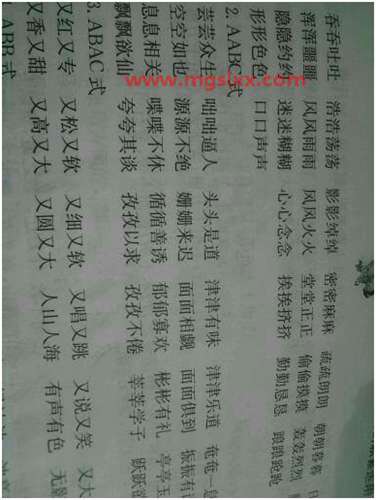 吞吞吐吐 浩浩荡荡 影影绰绰 密密麻麻 疏疏朗朗 朝朝暮暮
浑浑噩噩 风风雨雨 风风火火 堂堂正正 偷偷摸摸 轰轰烈烈
隐隐约约 迷迷糊糊 心心念念 挨挨挤挤 勤勤恳恳 踉踉跄跄
形形色色 口口声声
2. AABC 式
芸芸众生 咄咄逼人 头头是道 津津有味 津津乐道 奄奄一
空空如也 源源不绝 姗姗来迟 面面相觑 面面俱到 振振有
息息相关 喋喋不休 循循善诱 郁郁寡欢 彬彬有礼 亭亭玉
飘飘欲仙 夸夸其谈 孜孜以求 孜孜不倦 莘莘学子 跃跃欲
3. ABAC 式
又红又专 又松又软 又细又软 又唱又跳 又说又笑 又大
又香又甜 又高又大 又圆又大 人山人海 有声有色
ABB 式
www.mgslxx.com